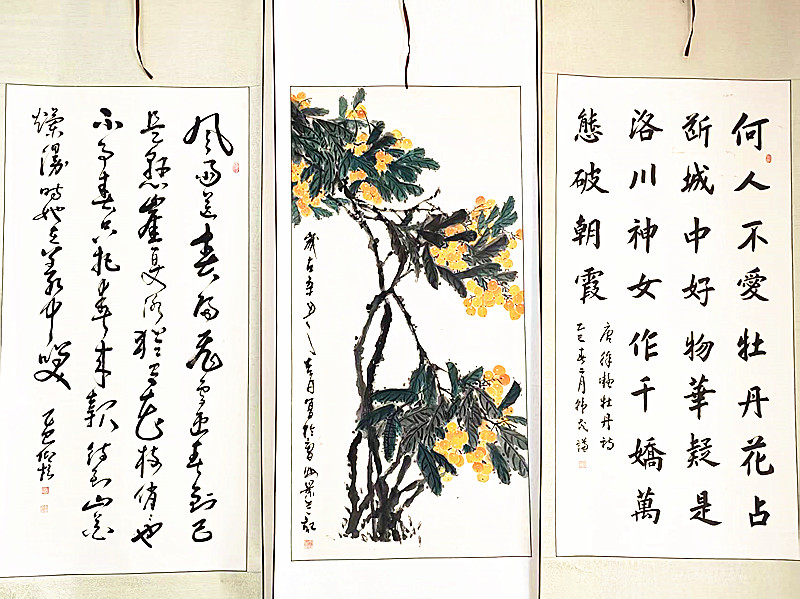 何人不愛牡丹花占
断城中好物華疑是
洛川神女作千嬌萬
態破朝霞
唐徐凝牡丹詩
乙巳春二月
风雨送春归飞雪迎春到已
是懸崖百丈冰犹有花枝俏也
不争春只把春来報待到山花
爛漫時她在叢中笑